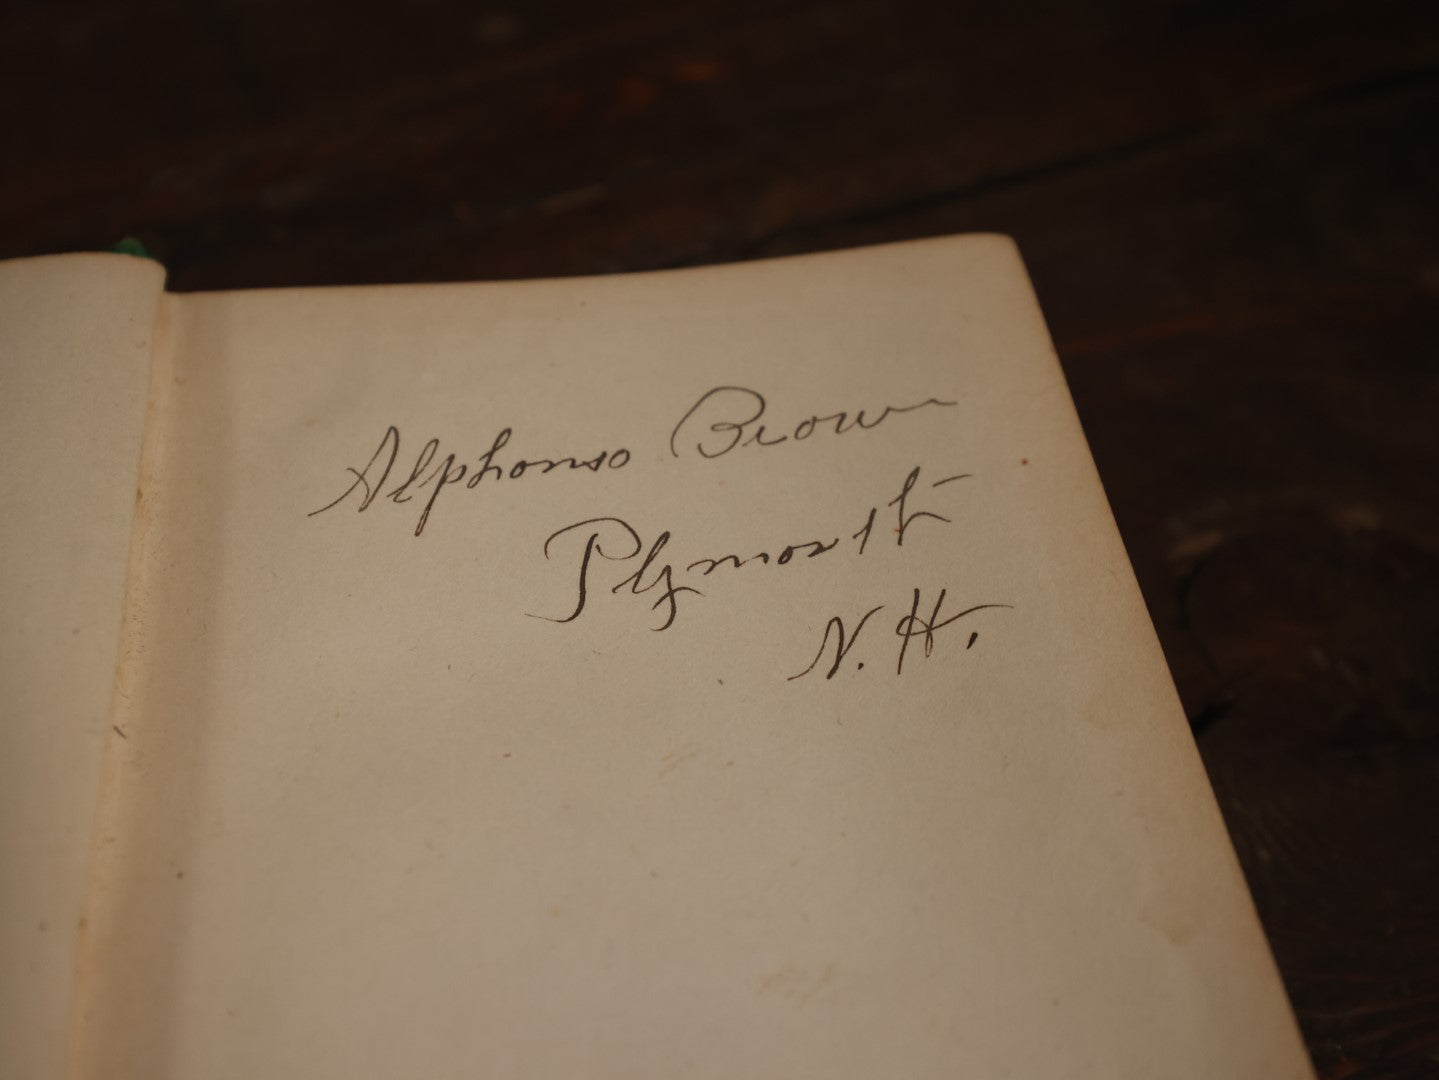 Alphonso Brown
Plymouth
N. H.